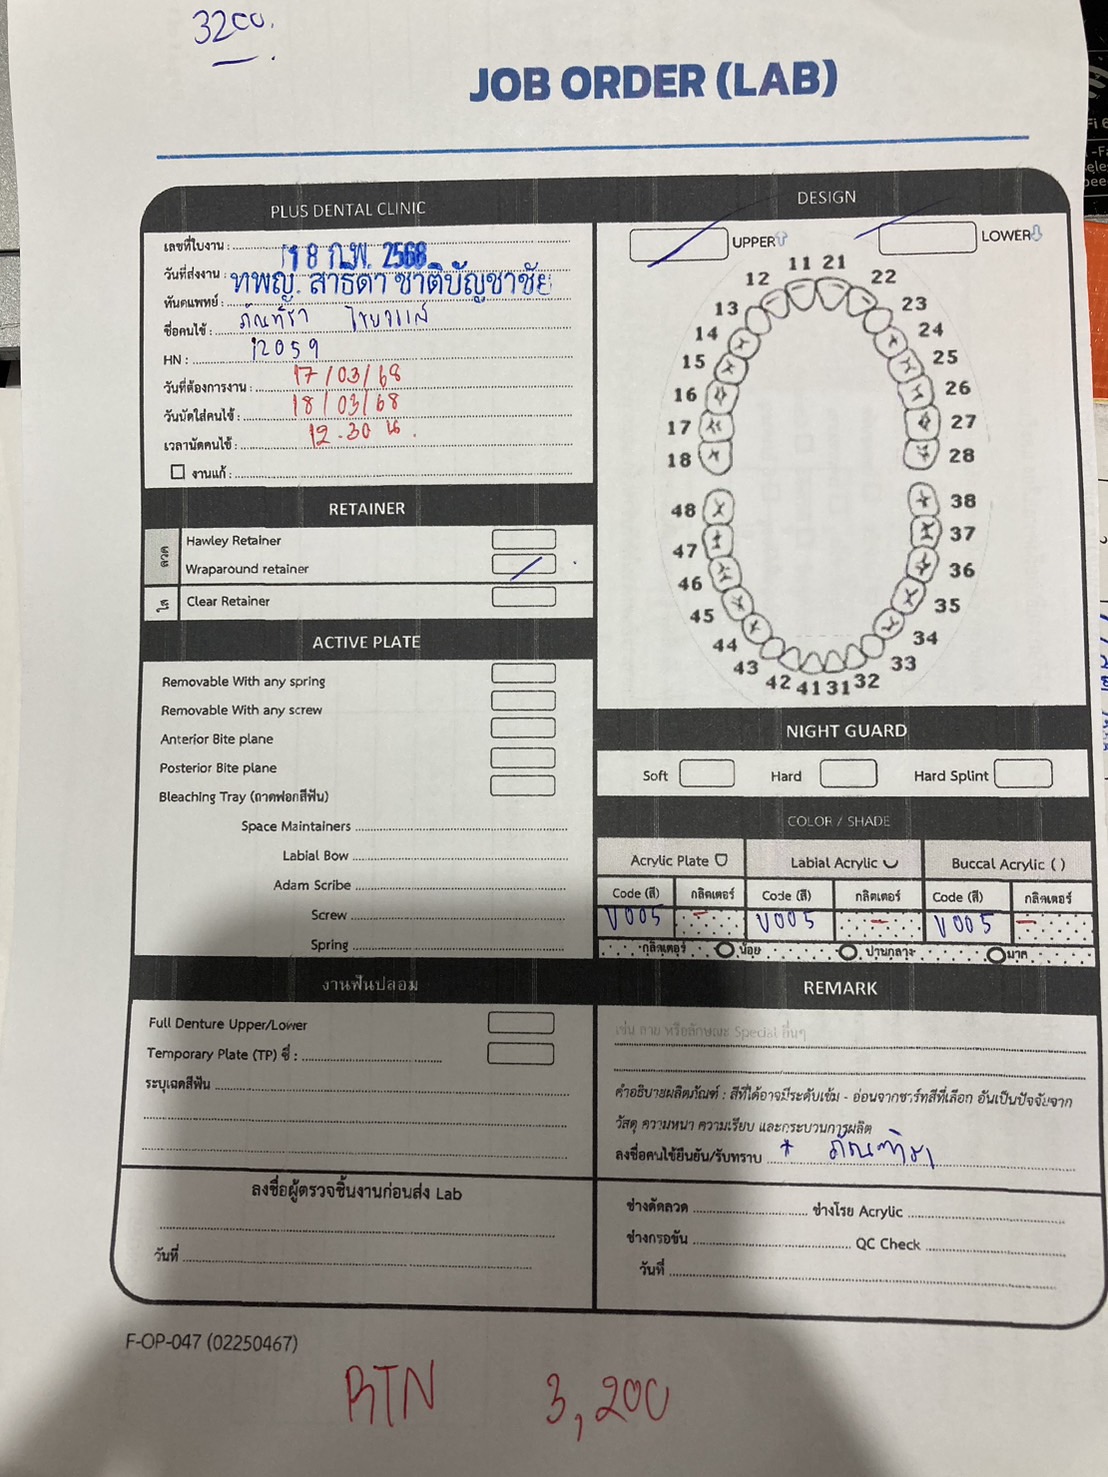 3200.
JOB ORDER (LAB)
PLUS DENTAL CLINIC
เลขที่ใบงาน :
วันที่ส่งงาน : 18 ก.พ. 2568
ทันตแพทย์ : ทพญ. สาธิดา ชาติบัญชาชัย
ชื่อคนไข้ : ภัณฑิรา
HN : 12059
วันที่ต้องการงาน : 17/03/68
วันนัดใส่คนไข้ : 18/03/68
เวลานัดคนไข้ : 12.30 น.
งานแก้ :
RETAINER
ลวด
Hawley Retainer
Wraparound retainer
ใส
Clear Retainer
ACTIVE PLATE
Removable With any spring
Removable With any screw
Anterior Bite plane
Posterior Bite plane
Bleaching Tray (ถาดฟอกสีฟัน)
Space Maintainers
Labial Bow
Adam Scribe
Screw
Spring
งานฟันปลอม
Full Denture Upper/Lower
Temporary Plate (TP) ซี่ :
ระบุเฉดสีฟัน
ลงชื่อผู้ตรวจชิ้นงานก่อนส่ง Lab
วันที่
DESIGN
UPPER LOWER
11 21
12 22
13 23
14 24
15 25
16 26
17 27
18 28
48 38
47 37
46 36
45 35
44 34
43 33
42 41 31 32
NIGHT GUARD
Soft Hard Hard Splint
COLOR / SHADE
Acrylic Plate Labial Acrylic Buccal Acrylic ( )
Code (สี) กลิตเตอร์ Code (สี) กลิตเตอร์ Code (สี) กลิตเตอร์
V005 - V005 - V005 -
กลิตเตอร์ น้อย ปานกลาง มาก
REMARK
เช่น ลาย หรือลักษณะ Special อื่นๆ
คำอธิบายผลิตภัณฑ์ : สีที่ได้อาจมีระดับเข้ม - อ่อนจากชาร์ทสีที่เลือก อันเป็นปัจจัยจาก
วัสดุ ความหนา ความเรียบ และกระบวนการผลิต
ลงชื่อคนไข้ยืนยัน/รับทราบ * ภัณฑิรา
ช่างดัดลวด ช่างโรย Acrylic
ช่างกรอขัน QC Check
วันที่
F-OP-047 (02250467)
RTN 3,200